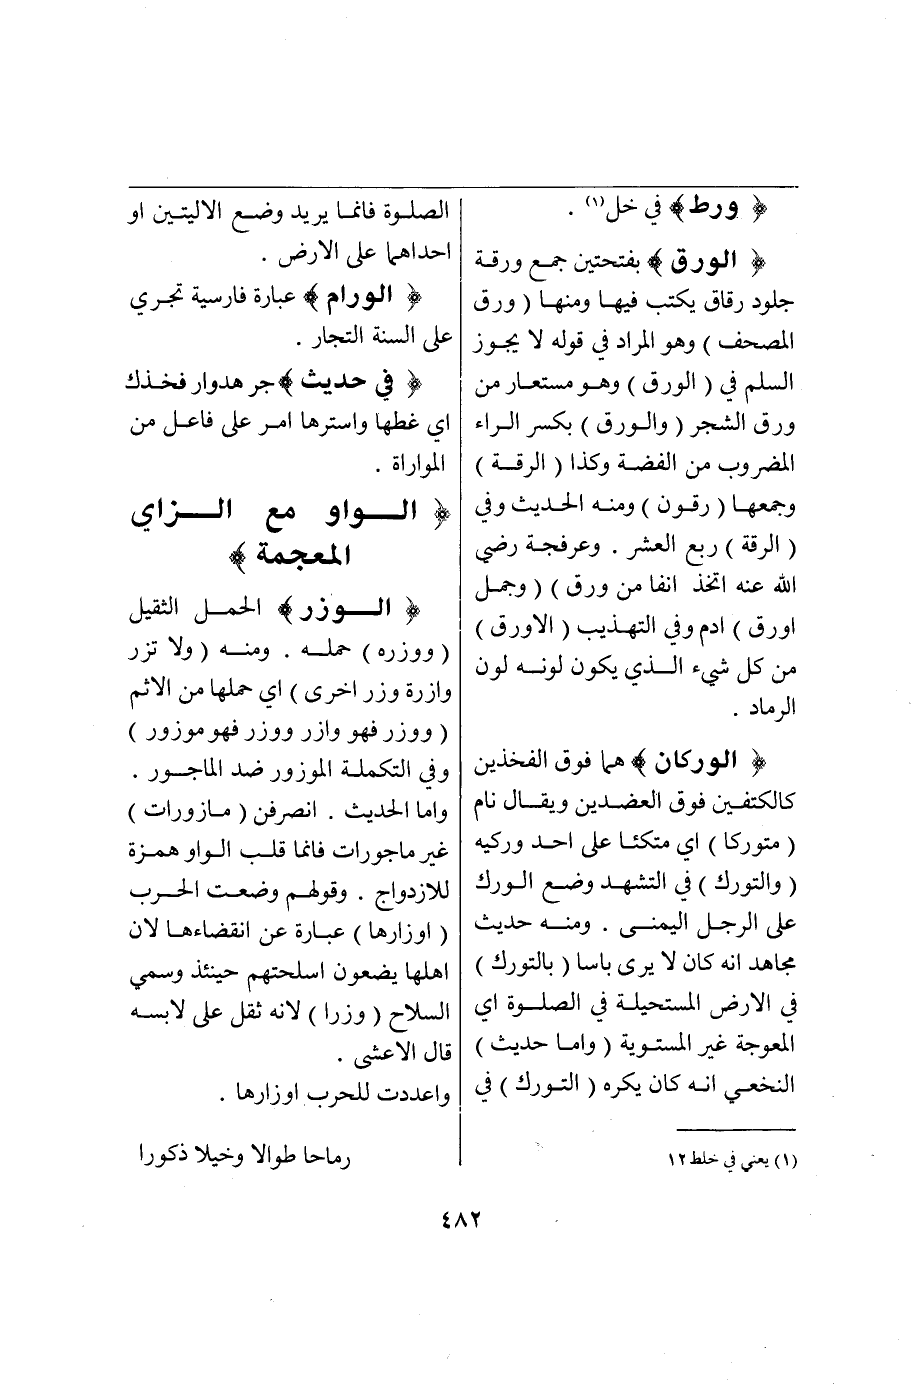 ﴿ ورط ﴾ في خل(١) .
﴿ الورق ﴾ بفتحتين جمع ورقة
جلود رقاق يكتب فيها ومنها ( ورق
المصحف ) وهو المراد في قوله لا يجوز
السلم في ( الورق ) وهو مستعار من
ورق الشجر ( والورق ) بكسر الراء
المضروب من الفضة وكذا ( الرقة )
وجمعها ( رقون ) ومنه الحديث وفي
( الرقة ) ربع العشر . وعرفجة رضي
الله عنه اتخذ انفا من ورق ) ( وجمل
اورق ) ادم وفي التهذيب ( الاورق )
من كل شيء الذي يكون لونه لون
الرماد .
﴿ الوركان ﴾ هما فوق الفخذين
كالكتفين فوق العضدين ويقال نام
( متوركا ) اي متكئا على احد وركيه
( والتورك ) في التشهد وضع الورك
على الرجل اليمنى . ومنه حديث
مجاهد انه كان لا يرى باسا ( بالتورك )
في الارض المستحيلة في الصلوة اي
المعوجة غير المستوية ( واما حديث )
النخعي انه كان يكره ( التورك ) في
(١) يعني في خلط ١٢
الصلوة فانما يريد وضع الاليتين او
احداهما على الارض .
﴿ الورام ﴾ عبارة فارسية تجري
على السنة التجار .
﴿ في حديث ﴾ جر هدوار فخذك
اي غطها واسترها امر على فاعل من
المواراة .
﴿ الواو مع الزاي
المعجمة ﴾
﴿ الوزر ﴾ الحمل الثقيل
( ووزره ) حمله . ومنه ( ولا تزر
وازرة وزر اخرى ) اي حملها من الاثم
( ووزر فهو وازر ووزر فهو موزور )
وفي التكملة الموزور ضد الماجور .
واما الحديث . انصرفن ( مازورات )
غير ماجورات فانما قلب الواو همزة
للازدواج . وقولهم وضعت الحرب
( اوزارها ) عبارة عن انقضاءها لان
اهلها يضعون اسلحتهم حينئذ وسمي
السلاح ( وزرا ) لانه ثقل على لابسه
قال الاعشى .
واعددت للحرب اوزارها .
رماحا طوالا وخيلا ذكورا
٤٨٢